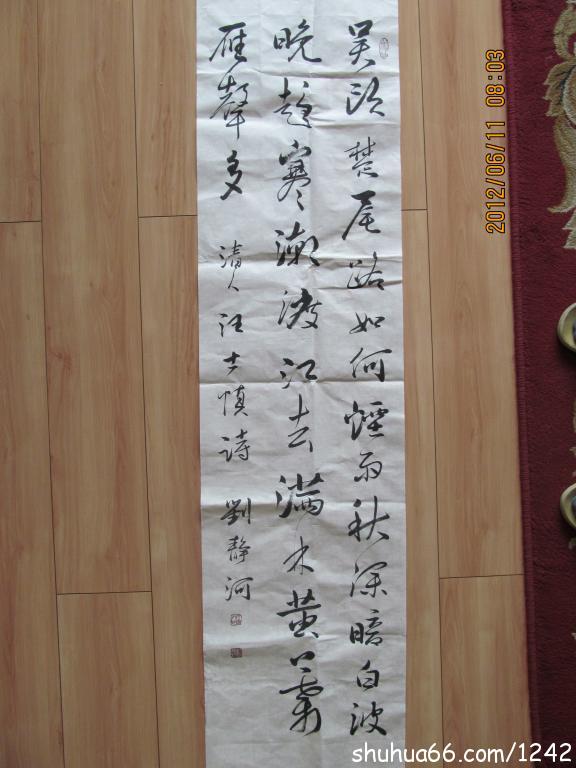 吴頭楚尾路如何煙雨秋深暗白波
晚趁寒潮渡江去滿林黄葉
雁聲多 清人汪士慎詩 劉靜河
2012/06/11 08:03
shuhua66.com/1242